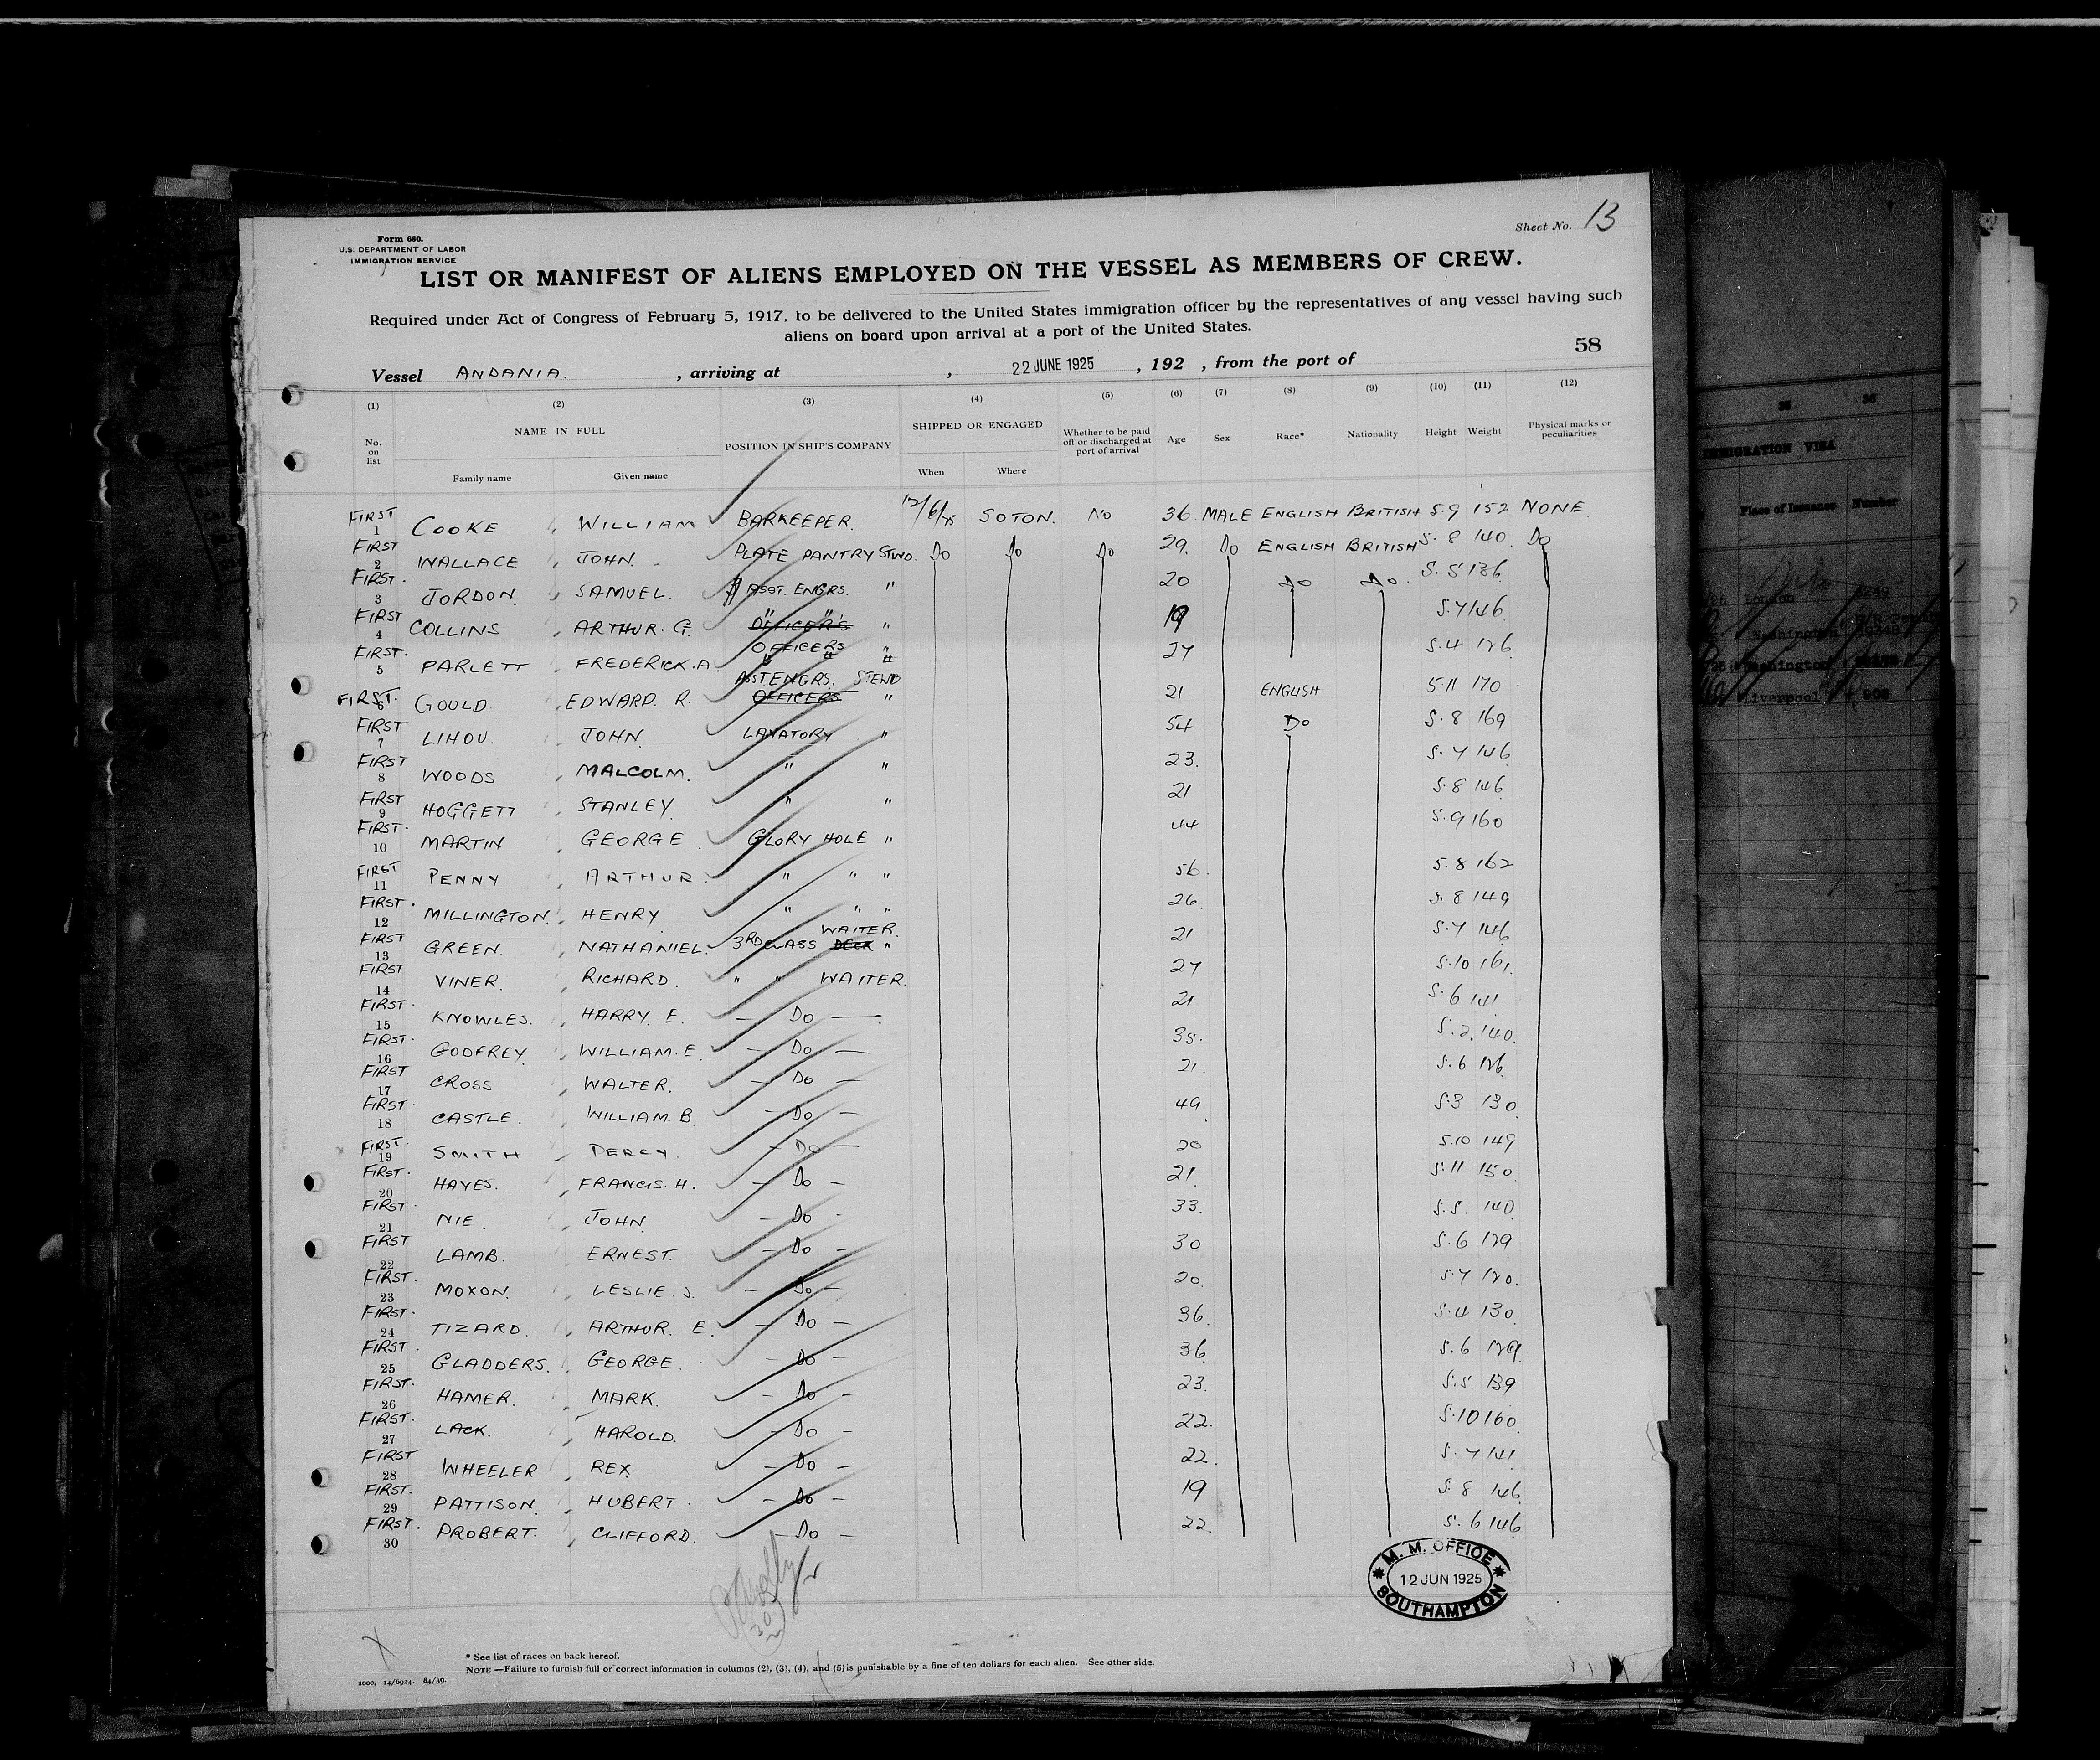 Sheet No. 13
Form 680.
U.S. DEPARTMENT OF LABOR
IMMIGRATION SERVICE
LIST OR MANIFEST OF ALIENS EMPLOYED ON THE VESSEL AS MEMBERS OF CREW.
Required under Act of Congress of February 5, 1917, to be delivered to the United States immigration officer by the representatives of any vessel having such
aliens on board upon arrival at a port of the United States.
58
Vessel ANDANIA. , arriving at , 22 JUNE 1925 , 192 , from the port of
(1) (2) (3) (4) (5) (6) (7) (8) (9) (10) (11) (12)
No. on list NAME IN FULL Family name Given name POSITION IN SHIP'S COMPANY SHIPPED OR ENGAGED When Where Whether to be paid off or discharged at port of arrival Age Sex Race* Nationality Height Weight Physical marks or peculiarities
FIRST 1 COOKE WILLIAM BARKEEPER. 12/6/25 SOTON. NO 36 MALE ENGLISH BRITISH 5.9 152 NONE
FIRST 2 WALLACE JOHN. PLATE PANTRY STWD. DO DO DO 29. DO ENGLISH BRITISH 5.8 140 DO
FIRST. 3 JORDON. SAMUEL. ASST. ENGRS. " 20 DO DO. 5.5 136
FIRST 4 COLLINS ARTHUR. G. " " OFFICER'S " 19 5.7 146
FIRST. 5 PARLETT FREDERICK. A. OFFICERS " 27 5.4 126
FIRST. 6 GOULD EDWARD. R. ASST ENGRS. STEWD OFFICERS " 21 ENGLISH 5.11 170
FIRST 7 LIHOU. JOHN LAVATORY " 54 DO 5.8 169
FIRST 8 WOODS MALCOLM. " " 23. 5.7 146
FIRST 9 HOGGETT STANLEY " " 21 5.8 146
FIRST. 10 MARTIN GEORGE GLORY HOLE " 44 5.9 160
FIRST 11 PENNY ARTHUR. " " " 56. 5.8 162
FIRST. 12 MILLINGTON. HENRY. " " " 26. 5.8 149
FIRST 13 GREEN. NATHANIEL. 3RD CLASS DECK WAITER. " 21 5.7 146
FIRST 14 VINER. RICHARD. " " WAITER. 27 5.10 161.
FIRST. 15 KNOWLES. HARRY. E. — DO — 21 5.6 141
FIRST. 16 GODFREY. WILLIAM. E. — DO — 38. 5.2. 140.
FIRST 17 CROSS WALTER. — DO — 21. 5.6 126
FIRST. 18 CASTLE. WILLIAM. B. — DO — 49 5.3 130.
FIRST. 19 SMITH PERCY. — DO — 20 5.10 149
FIRST. 20 HAYES. FRANCIS. H. — DO — 21. 5.11 150
FIRST. 21 NIE. JOHN — DO - 33. 5.5. 140
FIRST 22 LAMB. ERNEST. — DO — 30 5.6 129
FIRST. 23 MOXON. LESLIE. J. — DO — 20. 5.7 120.
FIRST. 24 TIZARD. ARTHUR. E. — DO — 36. 5.4 130.
FIRST. 25 GLADDERS. GEORGE. — DO — 36 5.6 129
FIRST. 26 HAMER. MARK. — DO — 23. 5.5 139
FIRST. 27 LACK. HAROLD. — DO — 22. 5.10 160
FIRST 28 WHEELER REX — DO — 22. 5.7 141
FIRST. 29 PATTISON. HUBERT. — DO — 19 5.8 146
FIRST. 30 PROBERT. CLIFFORD. — DO — 22. 5.6 146
30
M. M. OFFICE
12 JUN 1925
SOUTHAMPTON
X
* See list of races on back hereof.
NOTE —Failure to furnish full or correct information in columns (2), (3), (4), and (5) is punishable by a fine of ten dollars for each alien. See other side.
2000. 14/6924. 84/39.
35 36
IMMIGRATION VISA
Place of Issuance Number
London 
Washington
Washington
Liverpool 908